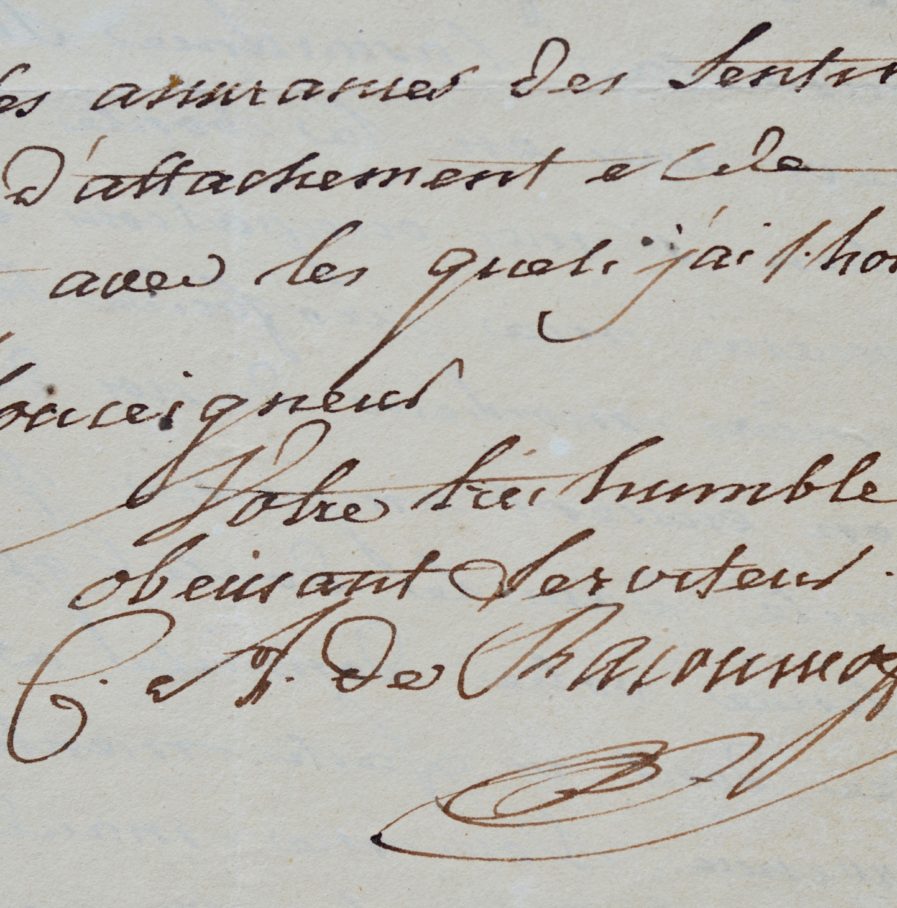 les assurances des Sentim
d'attachement et de
avec les quels j'ai l'hon
Monseigneur
Votre très humble
obeissant Serviteur.
C. A. de